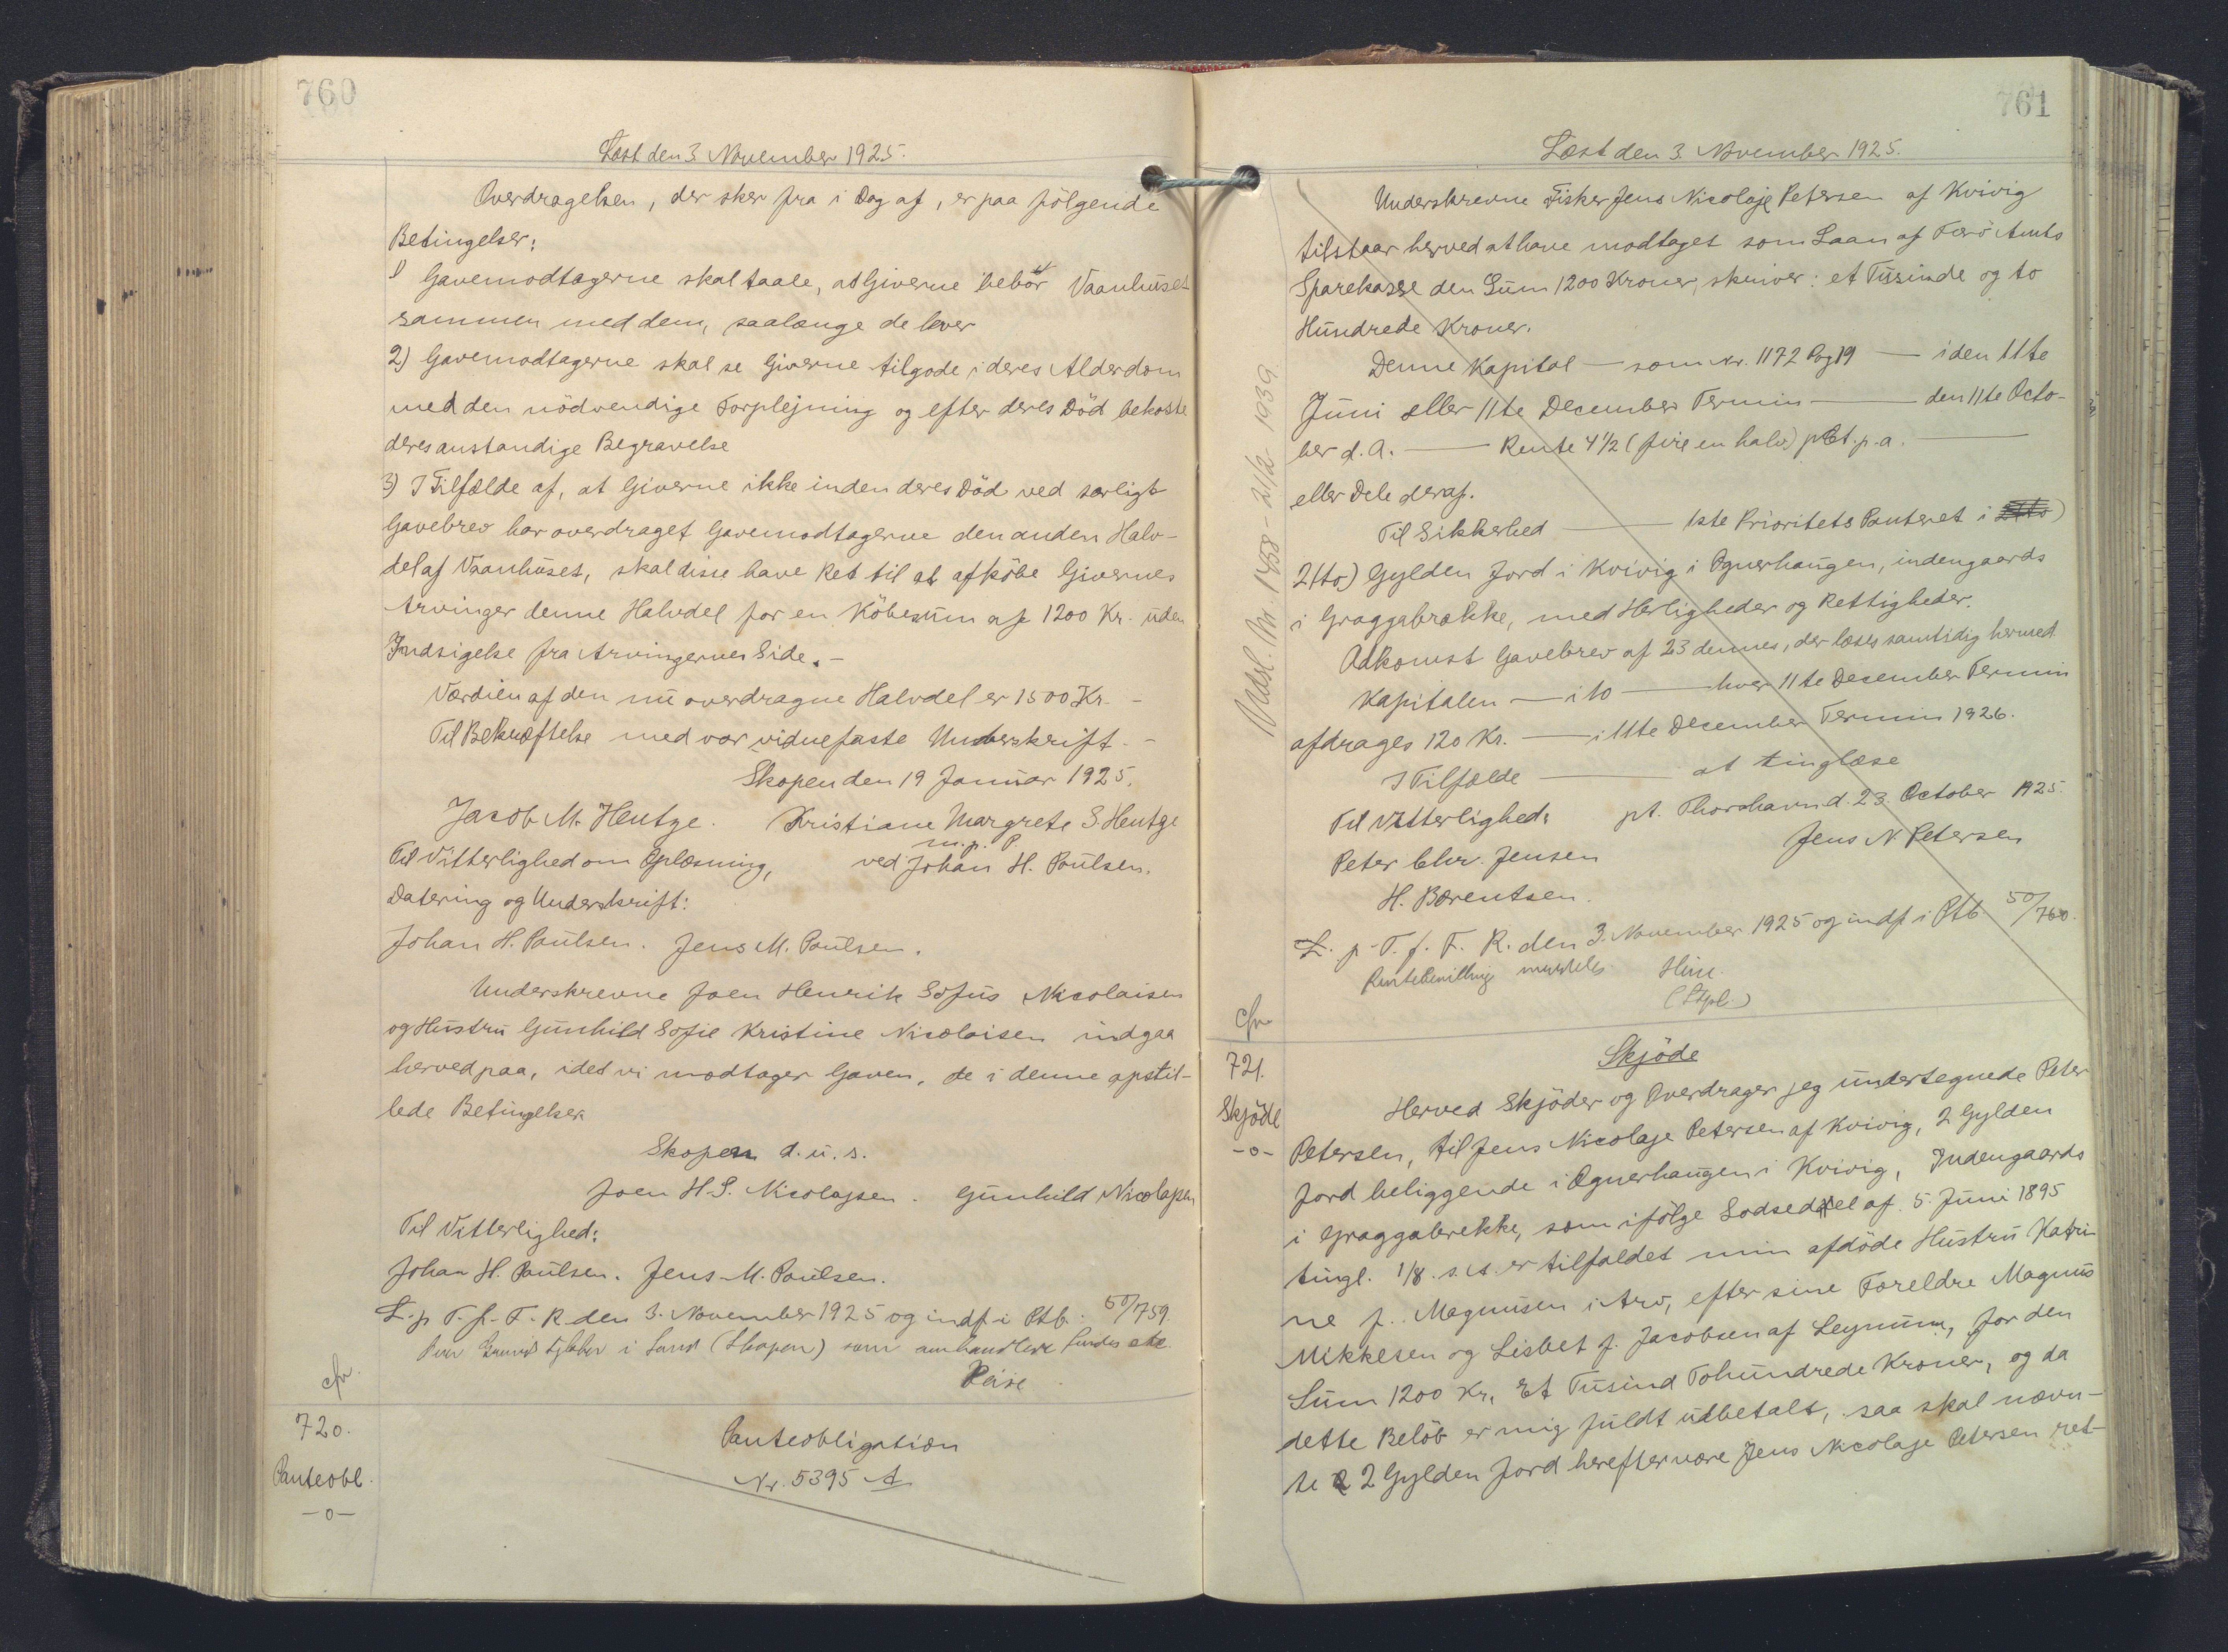 760
Læst den 3. November 1925.
Overdragelsen, der sker fra i Dag af, er paa følgende
Betingelser:
1) Gavemodtagerne skal taale, at Giverne bebor Vaanhuset
sammen med dem, saalænge de lever
2) Gavemodtagerne skal se Giverne tilgode i deres Alderdom
med den nödvendige Forplejning og efter deres Död bekoste
deres anstændige Begravelse
3) I Tilfælde af, at Giverne ikke inden deres Död ved særligt
Gavebrev har overdraget Gavemodtagerne den anden Halv-
del af Vaanhuset, skal disse have Ret til at afköbe Givernes
Arvinger denne Halvdel for en Köbesum af 1200 Kr. uden
Indsigelse fra Arvingernes Side. -
Værdien af den nu overdragne Halvdel er 1500 Kr. -
Til Bekræftelse med vor vidnefaste Underskrift. -
Skopen den 19 Januar 1925.
Jacob M. Hentze. Kristiane Margrete S. Hentze
m. p. P.
Til Vitterlighed om Oplæsning, ved Johan H. Poulsen.
Datering og Underskrift:
Johan H. Poulsen. Jens M. Poulsen.
Underskrevne Joen Henrik Sofus Nicolaisen
og Hustru Gunhild Sofie Kristine Nicolaisen indgaa
herved paa, idet vi modtager Gaven, de i denne opstil-
lede Betingelser.
Skopen d. u. s.
Joen H. S. Nicolajsen. Gunhild Nicolajsen
Til Vitterlighed:
Johan H. Poulsen. Jens M. Poulsen.
L. p T. f. F. R. den 3. November 1925 og indf i Ptb. 50/759.
i Sand (Skopen) som
cfr.
720.
Panteobl.
-o-
Panteobligation
Nr. 5395 A
761
Læst den 3. November 1925.
Underskrevne Fisker Jens Nicolaje Petersen af Kvivig
tilstaar herved at have modtaget som Laan af Færö Amts
Sparekasse den Sum 1200 Kroner, skriver: et Tusinde og to
Hundrede Kroner.
Denne Kapital — som Nr. 1172 Pag 19 — i den 11te
Juni eller 11te December Termin — den 11te Octo-
ber d. A. — Rente 4 1/2 (fire en halv) pCt. p. a. —
eller Dele deraf.
Til Sikkerhed — 1ste Prioritets Panteret i
2 (to) Gylden Jord i Kvivig i Ognerhaugen, indengaards
i Graggabrække, med Herligheder og Rettigheder.
Adkomst Gavebrev af 23 dennes, der læses samtidig hermed
Kapitalen — i 10 — hver 11te December Termin
afdrages 120 Kr. — i 11te December Termin 1926.
I Tilfælde — at tinglæse
Til Vitterlighed: pt. Thorshavn d. 23. October 1925.
Peter Chr. Jensen Jens N. Petersen
H. Bærentsen.
L. p. T. f. F. R. den 3. November 1925 og indf i Ptb 50/760.
Rentebevilling meddeles.
(Stpl.)
Udsl. Nr. 1458 - 21/2 1939.
cfr
721.
Skjöde
-o-
Skjöde
Herved Skjöder og Overdrager jeg undertegnede Peter
Petersen, til Jens Nicolaje Petersen af Kvivig, 2 Gylden
Jord beliggende i Ognerhaugen i Kvivig, Indengaards
i Graggabrekke, som ifölge Lodseddel af 5. Juni 1895
tingl. 1/8. s. A. er tilfaldet min afdöde Hustru Katri-
ne f. Magnusen i Arv, efter sine Foreldre Magnus
Mikkelsen og Lisbet f. Jacobsen af Leynum, for den
Sum 1200 Kr, Et Tusind Tohundrede Kroner, og da
dette Belöb er mig fuldt udbetalt, saa skal nævn-
te 2 Gylden Jord herefter være Jens Nicolaje Petersen ret-